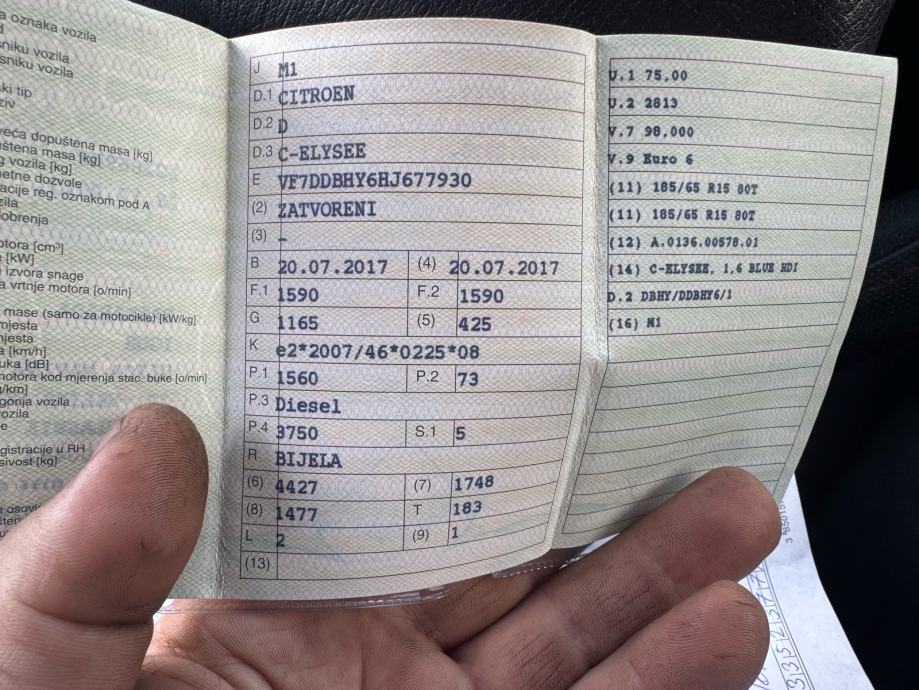 a oznaka vozila
sniku vozila
sniku vozila
ski tip
ziv
veća dopuštena masa [kg]
uštena masa [kg]
g vozila [kg]
metne dozvole
acije reg. oznakom pod A
zila
obrenja
otora [cm³]
[kW]
i izvora snage
a vrtnje motora [o/min]
mase (samo za motocikle) [kW/kg]
mjesta
mjesta
a [km/h]
uka [dB]
motora kod mjerenja stac. buke [o/min]
g/km]
gorija vozila
vozila
e
gistracije u RH
sivost [kg]
J M1
D.1 CITROEN
D.2 D
D.3 C-ELYSEE
E VF7DDBHY6HJ677930
(2) ZATVORENI
(3) –
B 20.07.2017 (4) 20.07.2017
F.1 1590 F.2 1590
G 1165 (5) 425
K e2*2007/46*0225*08
P.1 1560 P.2 73
P.3 Diesel
P.4 3750 S.1 5
R BIJELA
(6) 4427 (7) 1748
(8) 1477 T 183
L 2 (9) 1
(13)
U.1 75.00
U.2 2813
V.7 98,000
V.9 Euro 6
(11) 185/65 R15 80T
(11) 185/65 R15 80T
(12) A.0136.00578.01
(14) C-ELYSEE, 1,6 BLUE HDI
D.2 DBHY/DDBHY6/1
(16) M1